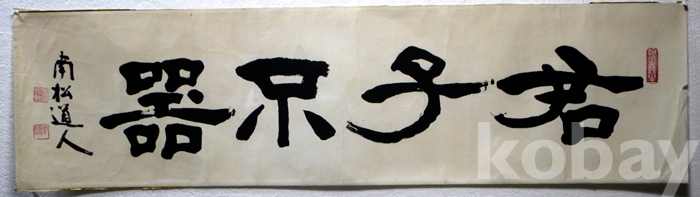 君子不器
南松道人
kobay